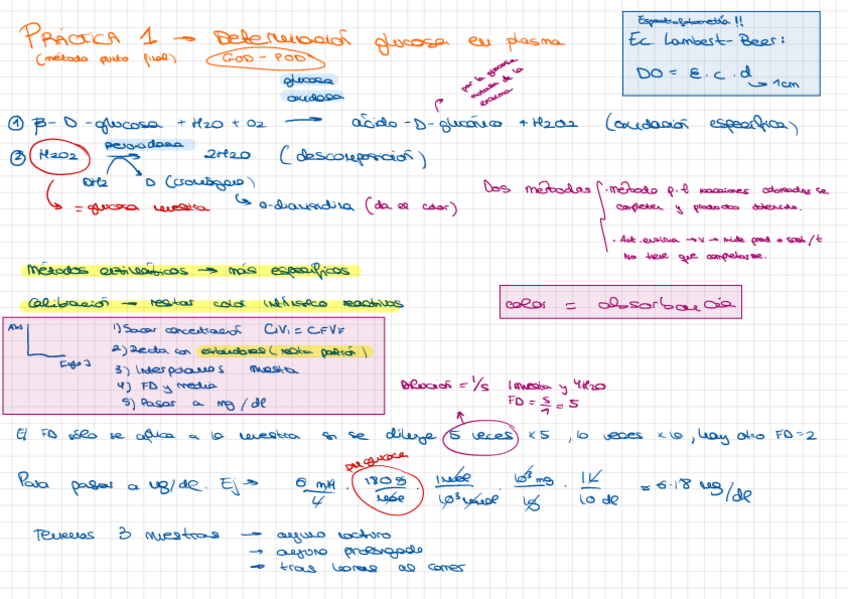 PRÁCTICA 1 → Determinación glucosa en plasma
(método punto final)
GOD - POD
Espectrofotometría !!
Ec. Lambert-Beer:
DO = ε . c . d
↳ 1cm
glucosa
oxidasa
① β-D-glucosa + H2O + O2 → ácido-D-glucónico + H2O2 (oxidación específica)
② H2O2 peroxidasa → 2H2O (descomposición)
DH2 D (cromógeno)
= glucosa muestra
↳ o-dianisidina (da el color)
Dos métodos
· método p.f reacciones coloreadas se
completen y producto detectado.
· Act. enzima → V → mide prod o sust/t
No tiene que completarse.
Métodos enzimáticos → más específicos
Calibración → restar color intrínseco reactivos
color = absorbancia
Abs
1) Sacar concentración CiVi = CFVF
2) Recta con estándares (recta patrón)
3) Interpolamos muestra
4) FD y media
5) Pasar a mg/dl
Dilución = 1/5 1 muestra y 4H2O
FD = 5/1 = 5
El FD sólo se aplica a la muestra si se diluye 5 veces x5, 10 veces x10, hay otro FD = 2
Para pasar a mg/dl. Ej →
180g
/mol
10³ mg
1g
1L
10 dl
= 6.18 mg/dl
Tenemos 3 muestras → ayuno nocturno
→ ayuno prolongado
→ tras horas al comer